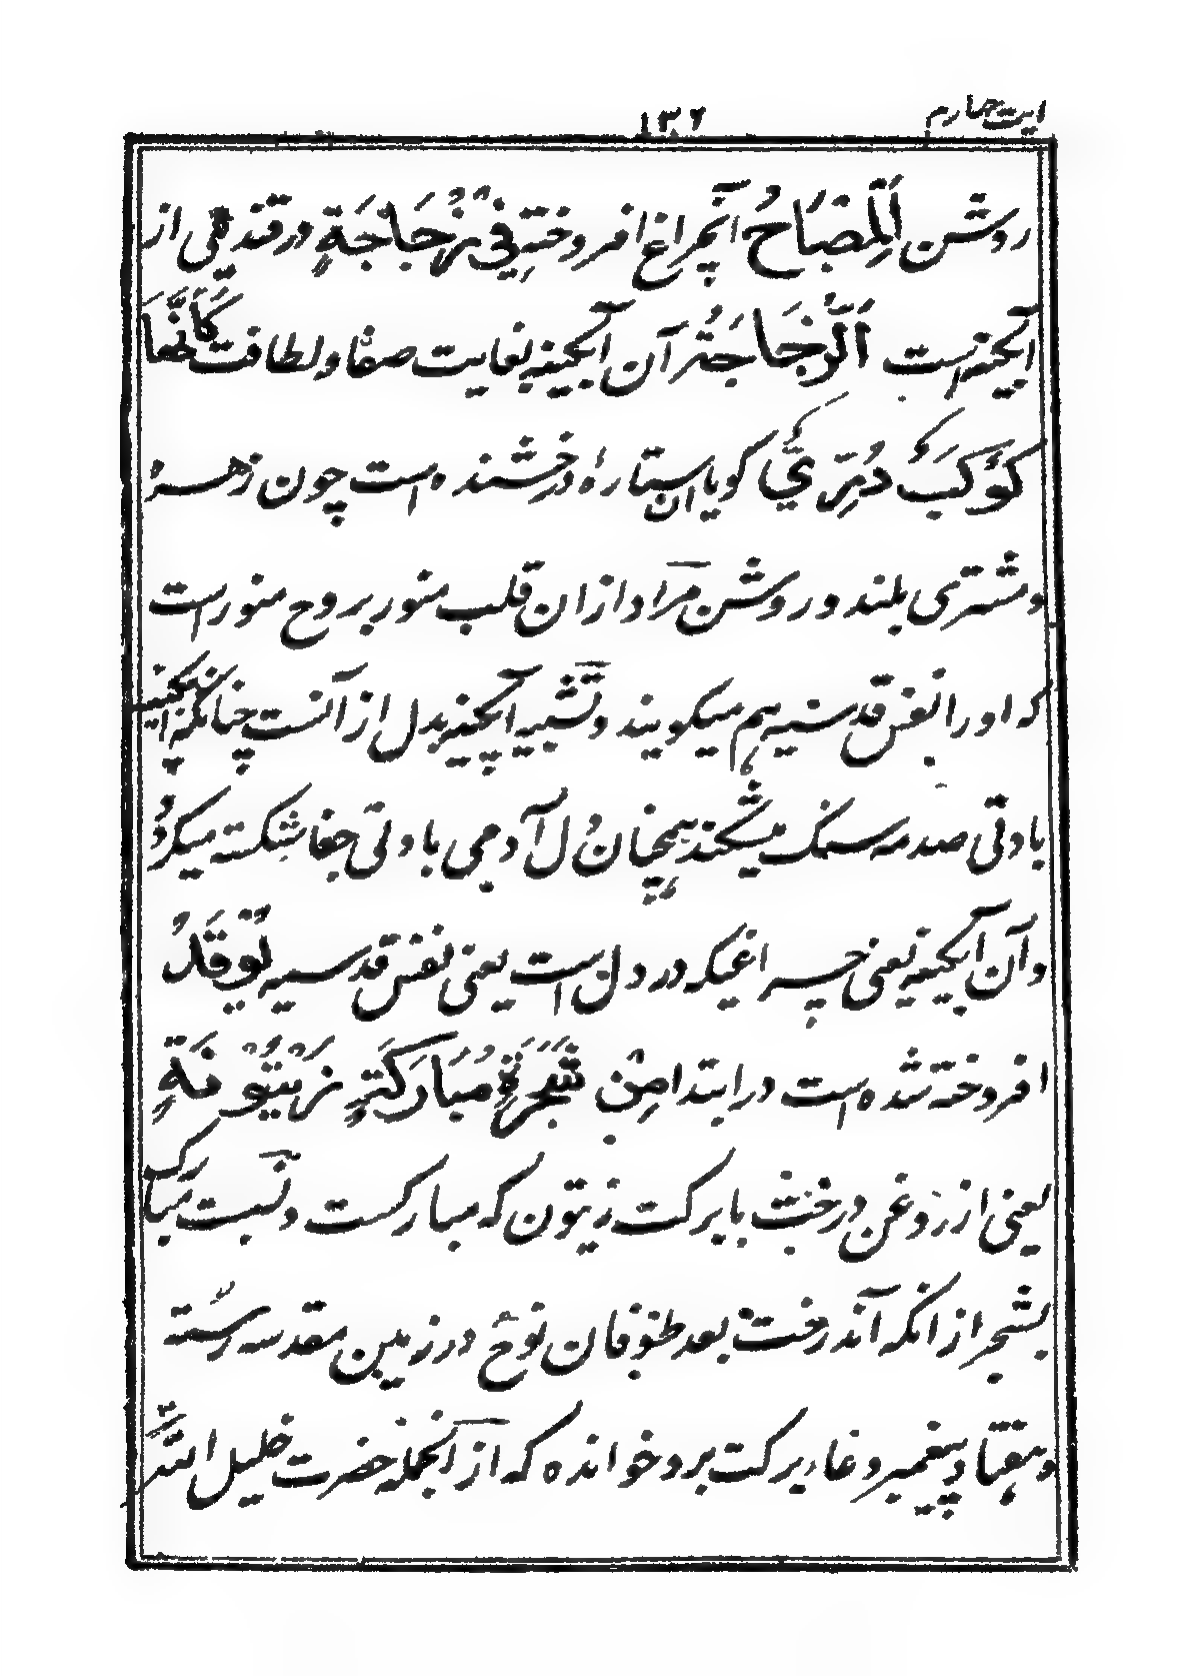 ایت چهارم
۱۳۶
روشن اَلْمِصْبَاحُ آنچراغ افروخته فِيْ زُجَاجَةٍ در قندیلی از
آبگینه است اَلزُّجَاجَةُ آن آبگینه بغایت صفا و لطافت كَأَنَّهَا
كَوْكَبٌ دُرِّيٌّ گویا آن ستارهٔ درخشنده است چون زهره
و مشتری بلند و روشن مراد ازان قلب منور بروح منور است
که او را نفس قدسیه هم میگویند و تشبیه آبگینه بدل از آنست چنانکه آبگینه
بادنی صدمه سنگ میشکند همچنان دل آدمی بادنی جفا شکسته میگردد
و آن آبگینه یعنی چراغیکه در دل است یعنی نفس قدسیه يُوْقَدُ
افروخته شده است در ابتدا مِنْ شَجَرَةٍ مُّبَارَكَةٍ زَيْتُوْنَةٍ
یعنی از روغن درخت با برکت زیتون که مبارکست و نسبت مبارک
بشجر از انکه آندرخت بعد طوفان نوح در زمین مقدسه رسته
و هفتاد پیغمبر دعاء برکت برو خوانده که از آنجمله حضرت خلیل الله